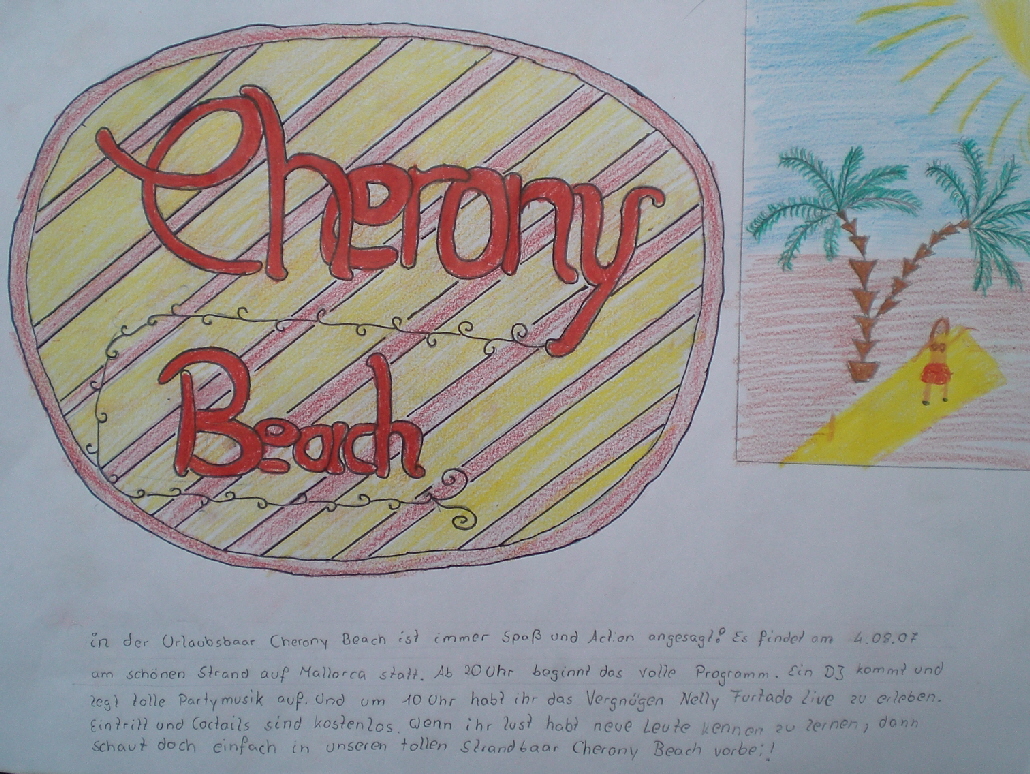 Cherony
Beach
in der Urlaubsbaar Cherony Beach ist immer Spaß und Action angesagt! Es findet am 4.09.07
am schönen Strand auf Mallorca statt. Ab 20 Uhr beginnt das volle Programm. Ein DJ kommt und
legt tolle Partymusik auf. Und um 10 Uhr habt ihr das Vergnügen Nelly Furtado live zu erleben.
Eintritt und Coctails sind kostenlos. Wenn ihr lust habt neue Leute kennen zu lernen, dann
schaut doch einfach in unseren tollen Strandbaar Cherony Beach vorbei!